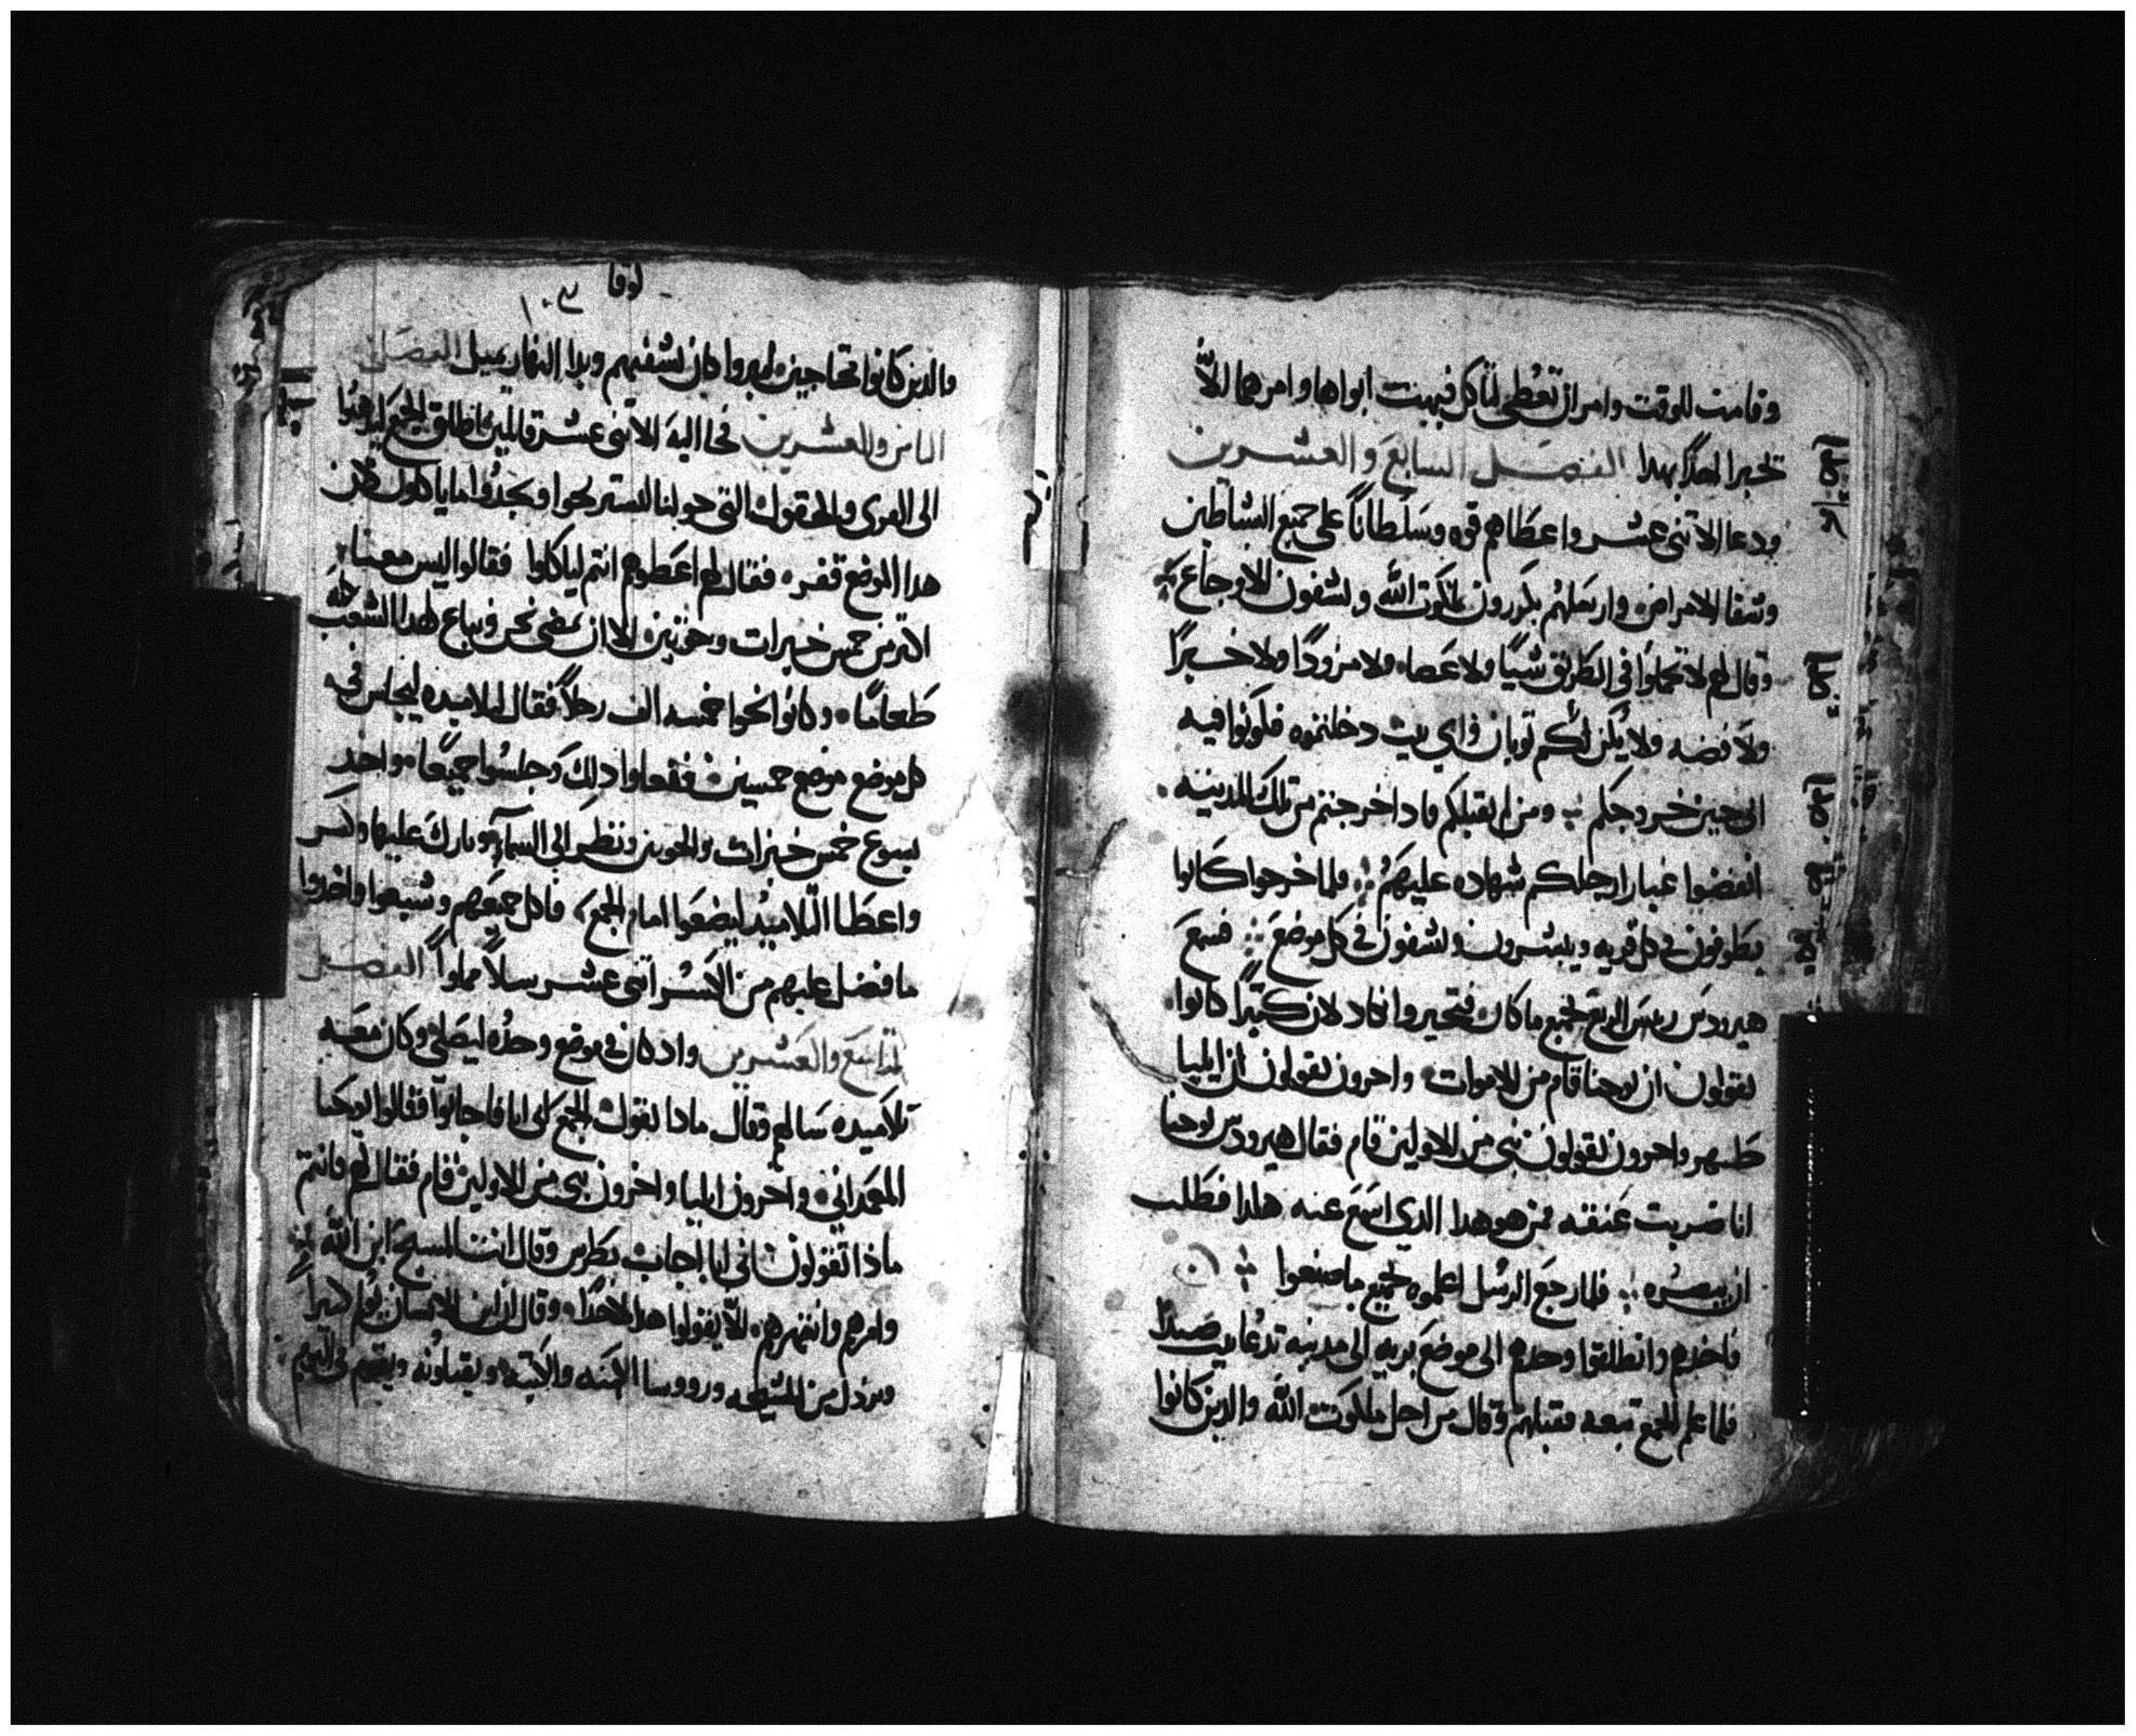 وقامت للوقت وامر ان تعطي لتاكل فبهت ابواها وامرهما الا
تخبرا احدًا بهدا الفصل السابع والعشرين
ودعا الاتنى عشر واعطاهم قوه وسلطانًا على جميع الشياطين
وشفا الامراض وارسلهم يكررون بملكوت الله ويشفون الاوجاع
وقال لهم لا تحملوا في الطريق شيًا ولا عصاه ولا مزودًا ولا خبزًا
ولا فضه ولا يكن لكم توبان واي بيت دخلتموه فكونوا فيه
الى حين خروجكم ومن لم يقبلكم فادا خرجتم من تلك المدينه
انفضوا غبار ارجلكم شهاده عليهم فلما خرجوا كانوا
يطوفون في كل قريه ويبشرون ويشفون في كل موضع فسمع
هيرودس ريس الربع بجميع ما كان فتحير وانكاد لان كتيرًا كانوا
يقولون ان يوحنا قام من الاموات واخرون يقولون ان ايليا
ظهر واخرون يقولون نبي من الاولين قام فقال هيرودس يوحنا
انا ضربت عنقه فمن هو هدا الدي اسمع عنه هكدا فطلب
ان يبصره فلما رجع الرسل اعلموه بجميع ما صنعوا
فاخدهم وانطلقوا وحدهم الى موضع بريه الى مدينه تدعا بيت صيدا
فلما علم الجمع تبعه فقبلهم وقال من اجل ملكوت الله والدين كانوا
لوقا
١٠٣
والدين كانوا محتاجين ليبروا كان يشفيهم وبدا النهار يميل الفصل
التامن والعشرين فجا اليه الاتنى عشر قايلين اطلق الجمع ليدهبوا
الى القرى والحقول التي حولنا ليستريحوا ويجدوا ما ياكلون لان
هدا الموضع قفره فقال لهم اعطوهم انتم لياكلوا فقالوا ليس معنا
اكتر من خمس خبزات وحوتين الا ان نمضي نحن ونبتاع لهدا الشعب كله
طعامًا وكانوا نحوا خمسه الف رجلًا فقال لتلاميده ليجلس في
كل موضع موضع خمسين ففعلوا دلك وجلسوا جميعًا واخد
يسوع خمس خبزات والحوتين ونظر الى السماء وبارك عليها وكسر
واعطا التلاميد ليضعوا امام الجمع فاكل جميعهم وشبعوا واخدوا
ما فضل عليهم من الكسر اتنى عشر سلًا مملواً الفصل
التاسع والعشرين واد كان في موضع وحده ليصلي وكان معه
تلاميده سالهم وقال مادا يقول الجمع اني انا فاجابوا وقالوا يوحنا
المعمداني واخرون ايليا واخرون نبي من الاولين قام فقال لهم وانتم
ماذا تقولون اني انا اجاب بطرس وقال انت المسيح ابن الله
وامرهم وانتهرهم للا يقولوا هدا لاحدًا وقال ان ابن الانسان يولم كتيراً
ويردل من المشيخه ورووسا الكهنه والكتبه ويقتلونه ويقوم في اليوم